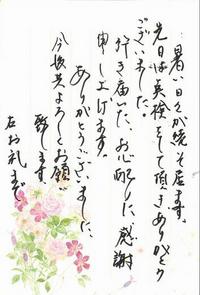 暑い日々が続き居ます。
先日は点検をして頂きありがとう
ございました。
行き届いた、お心配りに感謝
申し上げます。
ありがとうございました、
今後共よろしくお願い
致します
右お礼まで